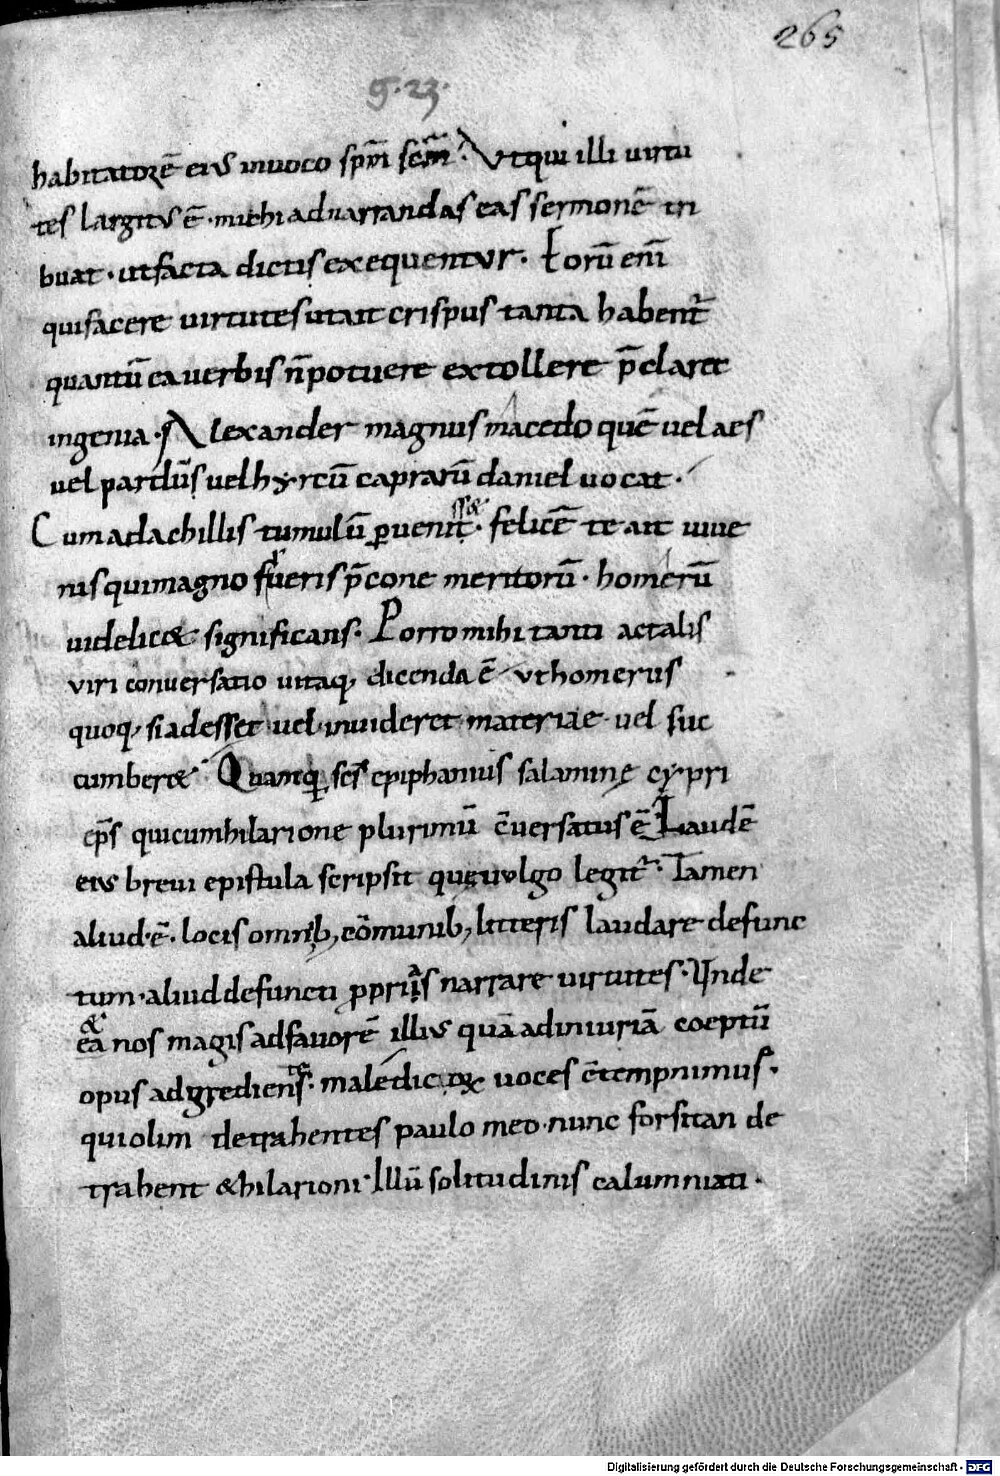 265
g. 23.
habitatorē eius inuoco spm̄ scm̄. Vt qui illi uirtu
tes largitus ē. mihi ad narrandas eas sermonē tri
buat. ut facta dictis exequentur. Eorū eni̅
qui facere uirtutes ut ait crispus tanta habent̄
quantū ea uerbis n̄ potuere extollere p̄clara
ingenia. Alexander magnus macedo quē uel aes
uel pardūs uel hyrcū caprarū daniel uocat.
Cum ad achillis tumulū ꝑuenit ss&. felicē te ait iuue
nis qui magno frueris p̄cone meritorū. homerū
uidelic& significans. Porro mihi tanti ac talis
uiri conuersatio uitaq, dicenda ē ut homerus
quoq, si adesset uel inuideret materiae uel suc
cumber&. Quamq̄ scs̄ epiphanius salaminę cypri
ep̄s qui cum hilarione plurimū c̄uersatus ē Laudē
eius breui epistula scripsit quę uolgo legit̄. Tamen
aliud. ē. locis omnib, cōmunib, litteris laudare defunc
tum. aliud defuncti ꝓpriias narrare uirtutes. Vnde
& ea nos magis ad fauorē illius quā ad iniuriā coeptū
opus adgredientes. maledic ox uoces c̄tempnimus.
qui olim detrahentes paulo meo. nunc forsitan de
trahent & hilarioni. Illū solitudinis calumniati.
Digitalisierung gefördert durch die Deutsche Forschungsgemeinschaft - DFG